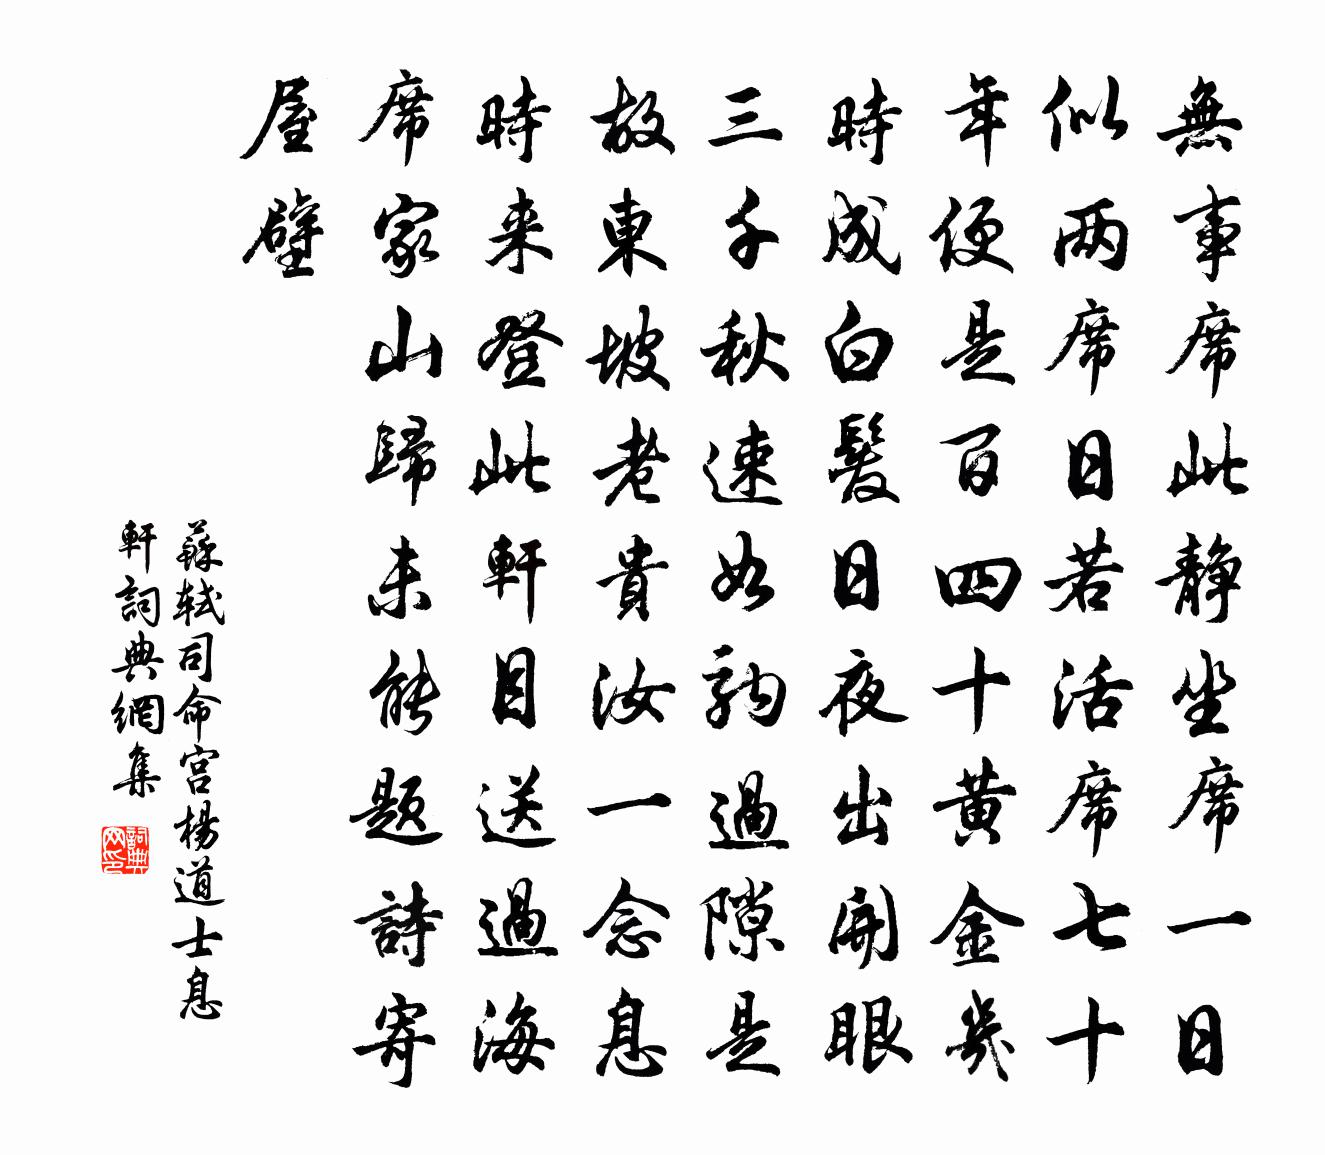 無事席此静坐席一日
似两席日若活席七十
年便是百四十黄金幾
時成白髮日夜出開眼
三千秋速如駒過隙是
故東坡老貴汝一念息
時来登此軒目送過海
席家山歸未能題詩寄
屋壁
蘇軾司命宮楊道士息
軒詞典網集
詞典
网印